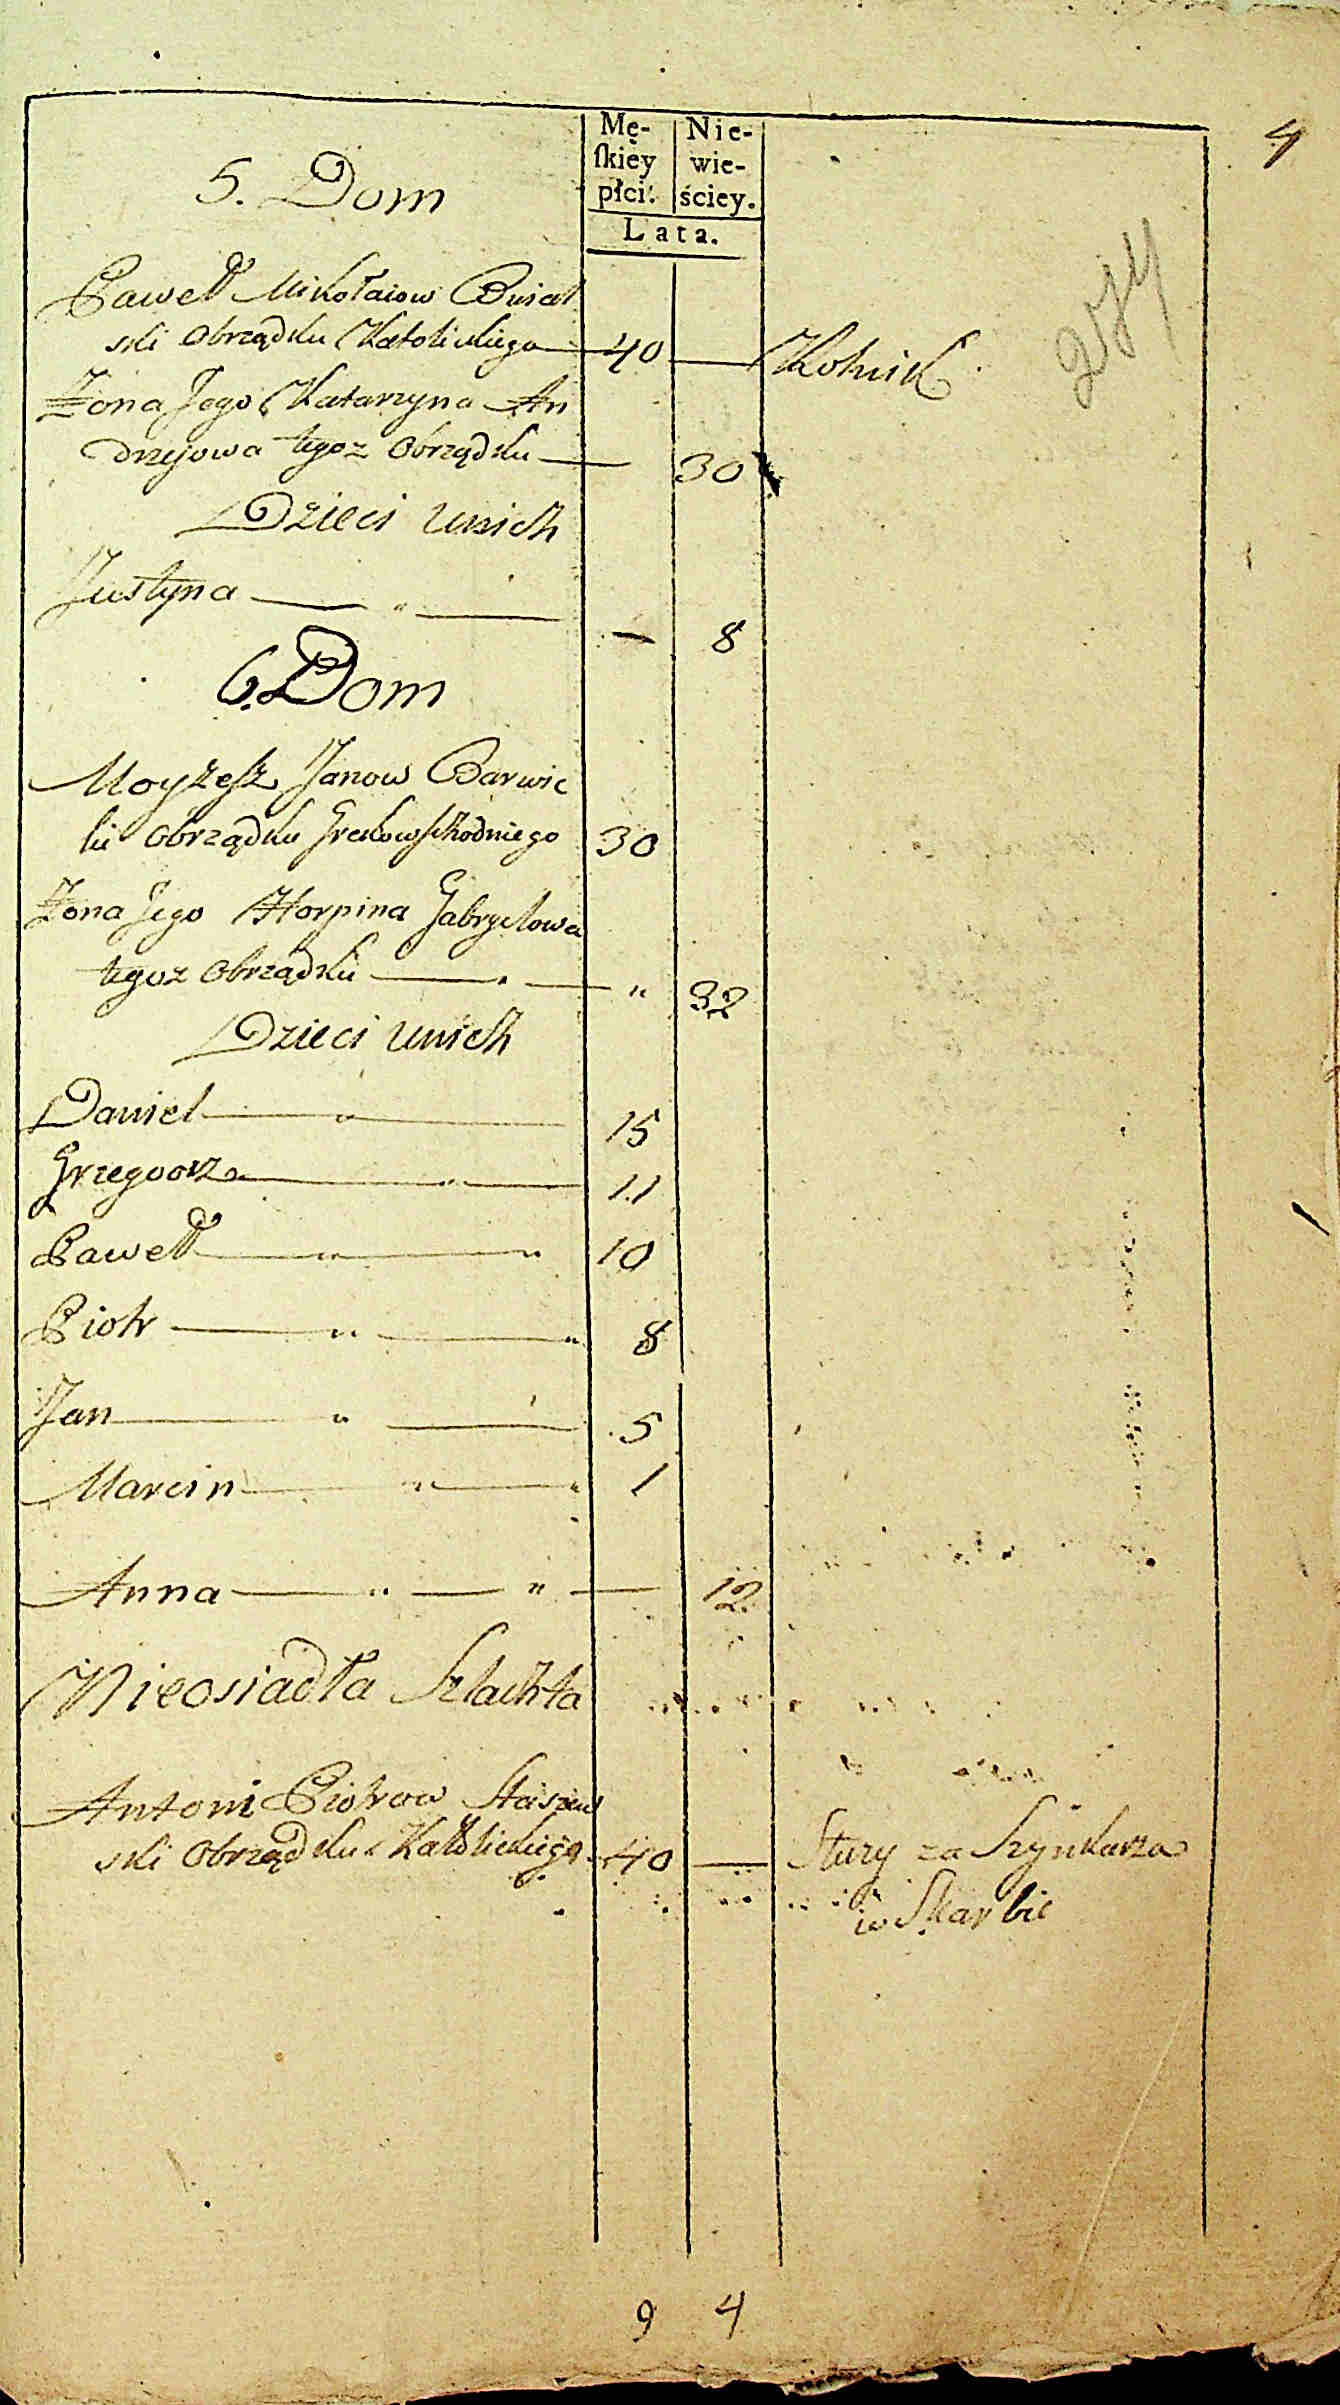 4
Mę-
skiéy
płci.
Nie-
wie-
ściey.
Lata.
5. Dom
Paweł Mikołaiow
ski Obrządku Katolickiego 40 Rolnik
Żona Jego Katarzyna An
drzejowa tegoz Obrządku 30
Dzieci unich
Justyna 8
6. Dom
Moyżesz Janow Barwic
ki Obrządku Grekowschodniego 30
Żona Jego Horpina Gabryelowa
tegoz Obrządku 32
Dzieci unich
Daniel 15
Grzegoorz 11
Paweł 10
Piotr 8
Jan 5
Marcin 1
Anna 12
Nieosiadła Szlachta
Antoni Piotrow Staszew
ski Obrządku Katolickiego 40 Służy za Szynkarza
w Skarbie
9 4